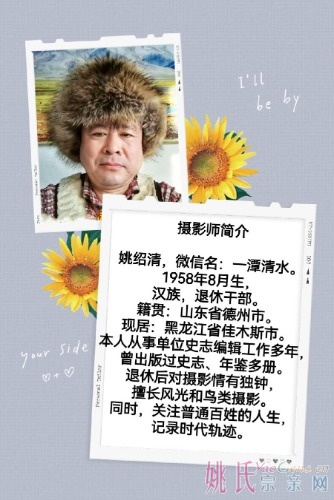 I'll
be by
摄影师简介
姚绍清，微信名：一潭清水。
1958年8月生，
汉族，退休干部。
籍贯：山东省德州市。
现居：黑龙江省佳木斯市。
本人从事单位史志编辑工作多年，
曾出版过史志、年鉴多册。
退休后对摄影情有独钟，
擅长风光和鸟类摄影。
同时，关注普通百姓的人生，
记录时代轨迹。
your side
姚氏宗亲网